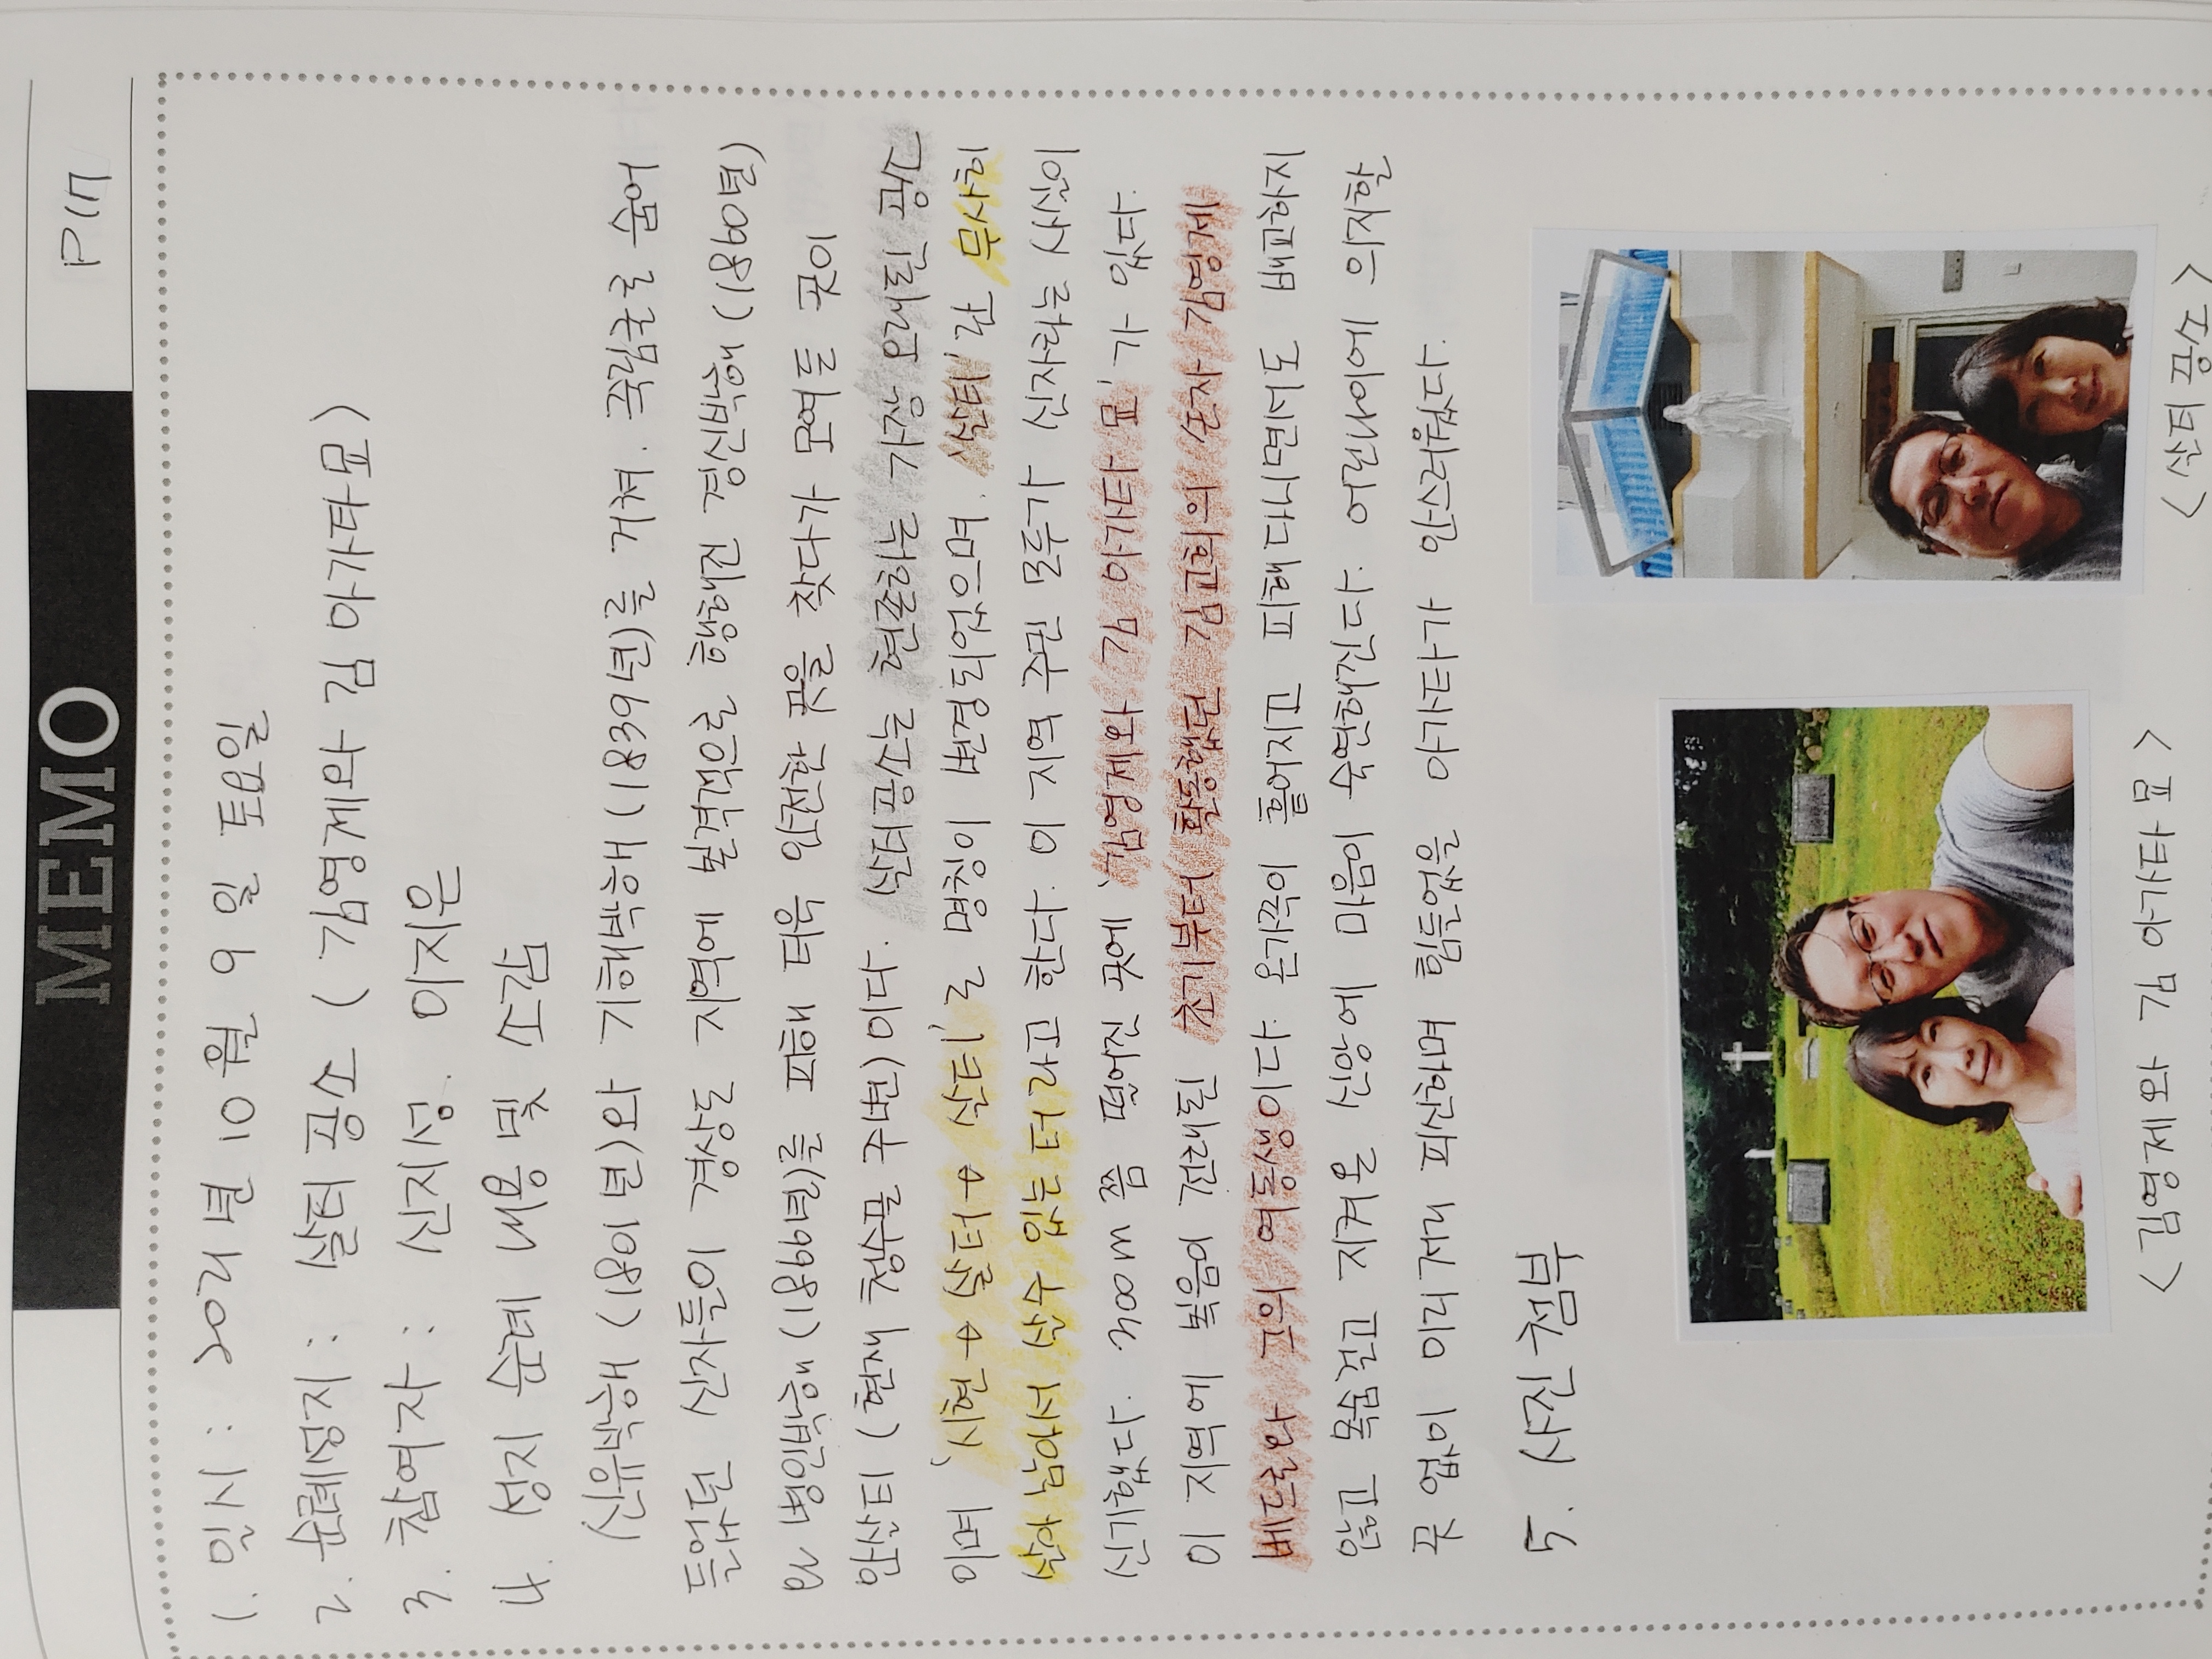 MEMO
P117
1. 일시 : 2021년 10월 9일 토요일
2. 순례성지 : 살티공소 (김영제와 김 아가타묘)
3. 참여자 : 신지성. 이지은
4. 성지 순례 내용 및 소감
신유박해 (1801년)와 기해박해 (1839년)를 거쳐. 죽림굴로 숨어
들었던 신자들이 경상도 지역에 본격적으로 행해진 경신박해 (1860년)
와 병인박해 (1866년)를 피해 더욱 안전한 곳을 찾다가 모여든 곳이
안살티 (현재 청수골 주변)이다. 살티공소는 현존하는 가장 오래된 공소
이며 '시현→살터→살티'로 명칭이 변경되었으며. '살티'란 무사히
살아 남아서 살수 있는 터라고 한다. 이 지역 주민 모두가 신자라는 사실이
신기했다. 300m쯤 떨어진 곳에 '김영제와 김 아가타 묘'가 있다.
이 지역에 복음이 전해된 초기부터 활동했던 김교희의 손자 김영제
베드로와 그의 여동생이다. 온가족이 흩어지고 피해다니면서도 배교하지
않고 목숨걸고 지켜온 신앙에 마음이 숙연해진다. 어린나이에 의지할
곳 없이 이리저리 피신하며 힘들었을 아가타가 안스러웠다.
5. 사진첨부
<김영제와 김 아가타묘>
<살티공소>